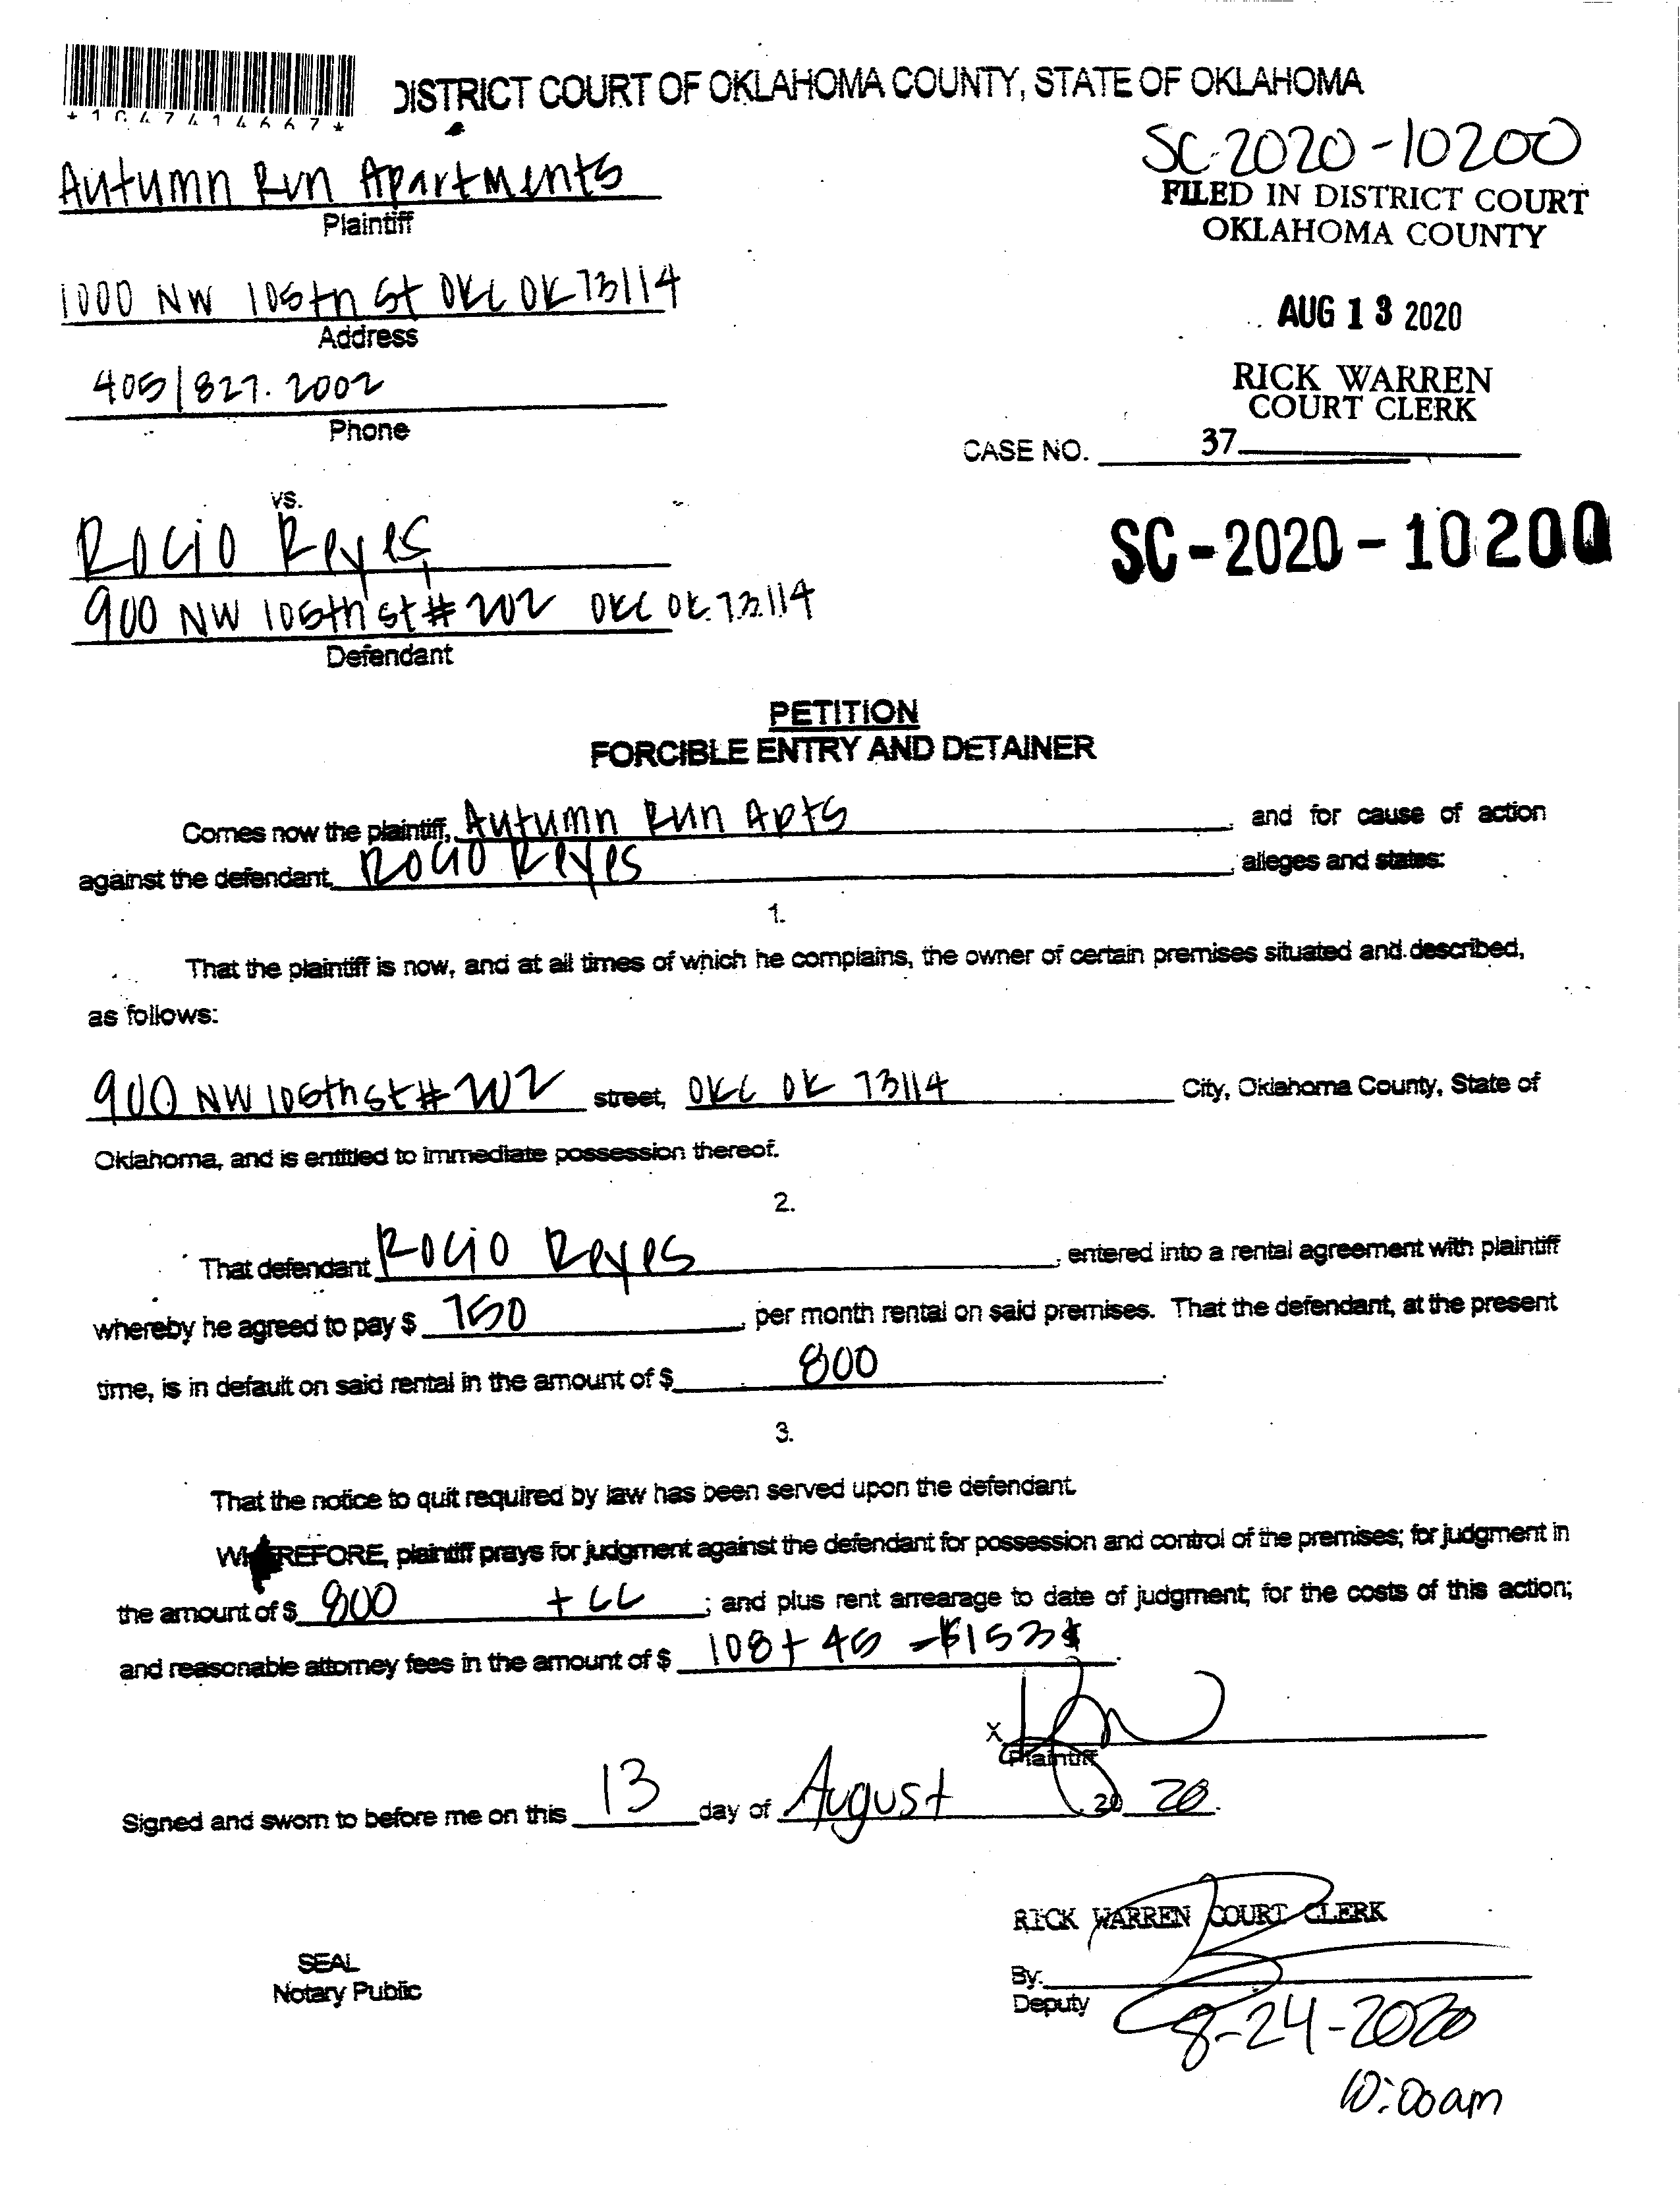 DISTRICT COURT OF OKLAHOMA COUNTY, STATE OF OKLAHOMA
*1047414667*
SC-2020-10200
Autumn Run Apartments
Plaintiff
FILED IN DISTRICT COURT
OKLAHOMA COUNTY
1000 NW 105th St OKC OK 73114
Address
AUG 13 2020
405|827.2002
Phone
RICK WARREN
COURT CLERK
CASE NO. 37
vs.
Rocio Reyes
SC-2020-10200
900 NW 105th st # 202 OKC OK 73114
Defendant
PETITION
FORCIBLE ENTRY AND DETAINER
Comes now the plaintiff, Autumn Run Apts, and for cause of action
against the defendant, Rocio Reyes, alleges and states:
1.
That the plaintiff is now, and at all times of which he complains, the owner of certain premises situated and described,
as follows:
900 NW 105th st # 202 street, OKC OK 73114 City, Oklahoma County, State of
Oklahoma, and is entitled to immediate possession thereof.
2.
That defendant Rocio Reyes, entered into a rental agreement with plaintiff
whereby he agreed to pay $ 750, per month rental on said premises. That the defendant, at the present
time, is in default on said rental in the amount of $ 800.
3.
That the notice to quit required by law has been served upon the defendant.
WHEREFORE, plaintiff prays for judgment against the defendant for possession and control of the premises; for judgment in
the amount of $ 800 + CC; and plus rent arrearage to date of judgment, for the costs of this action;
and reasonable attorney fees in the amount of $ 108 + 45 = $153.
X
Plaintiff
Signed and sworn to before me on this 13 day of August, 20 20.
RICK WARREN COURT CLERK
SEAL
Notary Public
By:
Deputy
8-24-2020
10:00am